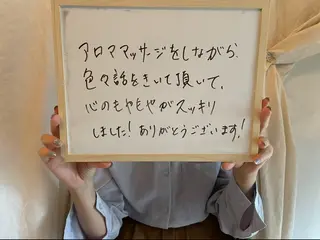 アロママッサージをしながら、
色々話をきいて頂いて、
心のもやもやがスッキリ
しました！ありがとうございます！